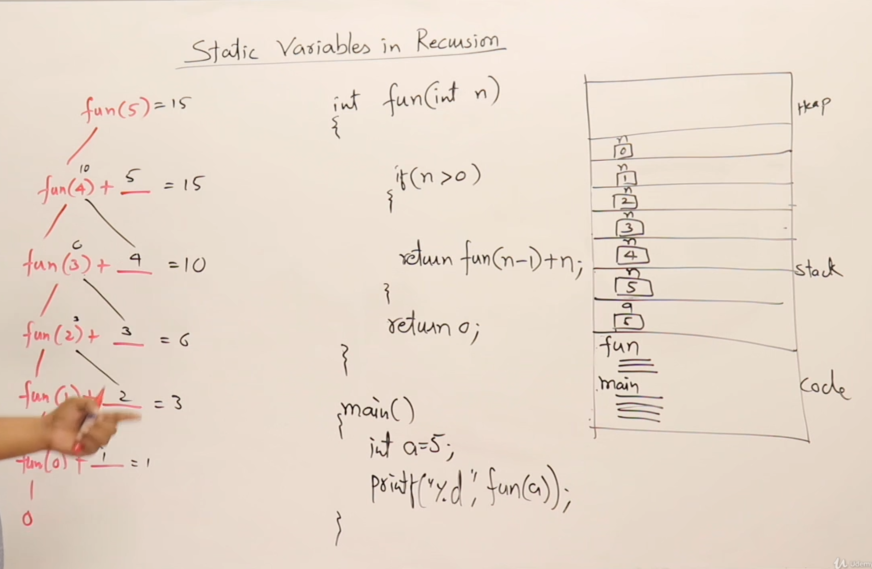 Static Variables in Recursion
fun(5) = 15
10
fun(4) + 5 = 15
6
fun(3) + 4 = 10
3
fun(2) + 3 = 6
fun(1) + 2 = 3
fun(0) + 1 = 1
0
int fun(int n)
{
if(n>0)
{
return fun(n-1)+n;
}
return 0;
}
main()
{
int a=5;
printf("%d", fun(a));
}
Heap
n
0
n
1
n
2
n
3
n
4
n
5
a
5
stack
fun
main
code